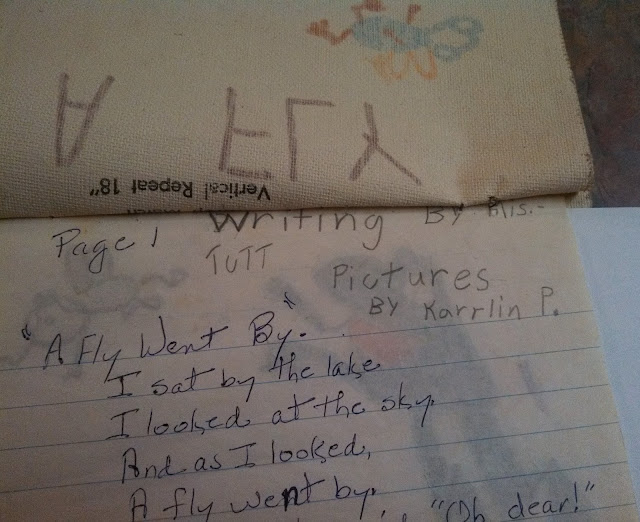 A FLY
Vertical Repeat 18"
Page 1
Writing By Blis.-
TUTT
Pictures
By Karrlin P.
"A Fly Went By".
I sat by the lake
I looked at the sky.
And as I looked,
A fly went by.
"Oh dear!"